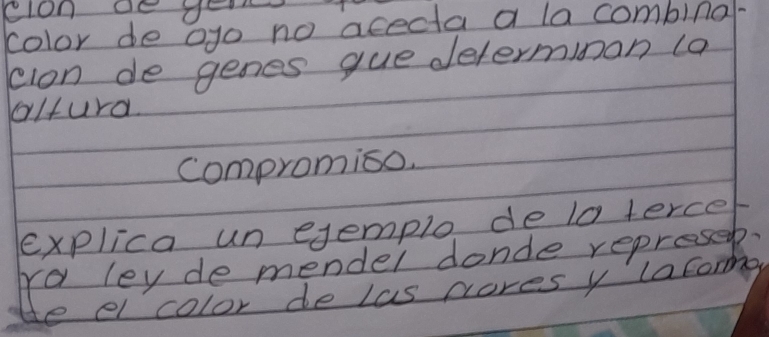 cion de
color de ojo no afecta a la combina-
cion de genes que determinan la
altura.
compromiso.
explica un ejemplo de la terce-
ra ley de mendel donde represen-
te el color de las flores y la forma